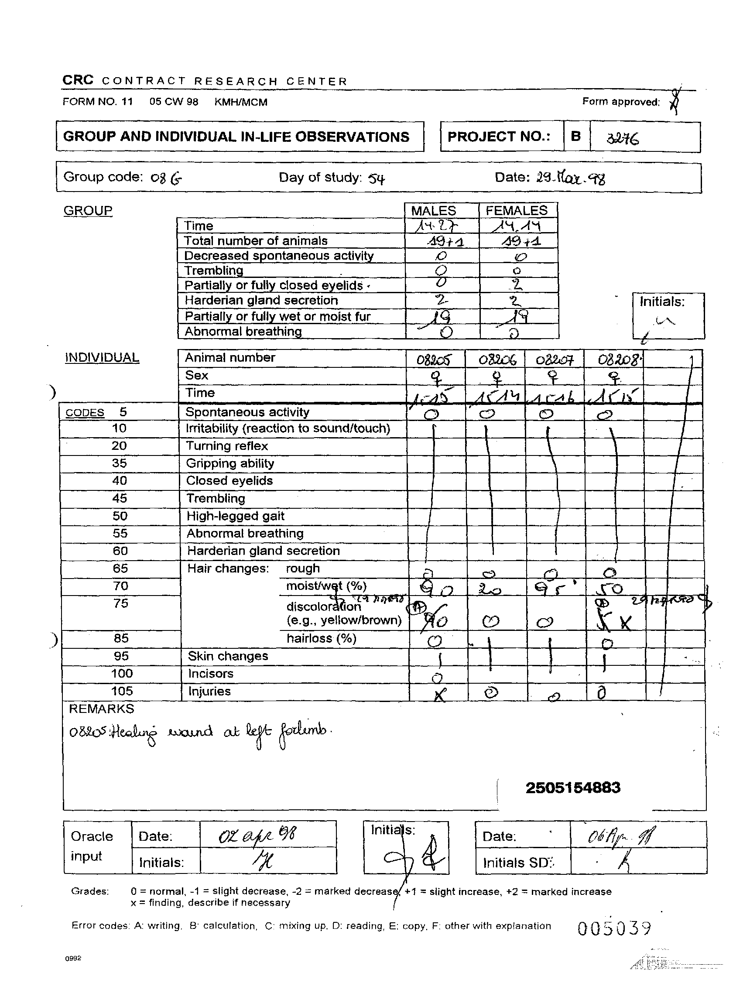 CRC CONTRACT RESEARCH CENTER
FORM NO. 11 05 CW 98 KMH/MCM Form approved:
GROUP AND INDIVIDUAL IN-LIFE OBSERVATIONS PROJECT NO.: B 3276
Group code: 08 G Day of study: 54 Date: 29. Mar. 98
GROUP MALES FEMALES
Time 14.27 14.14
Total number of animals 19+1 19+1
Decreased spontaneous activity 0 0
Trembling 0 0
Partially or fully closed eyelids 0 2
Harderian gland secretion 2 2 Initials:
Partially or fully wet or moist fur 19 19
Abnormal breathing 0 0
INDIVIDUAL Animal number 08205 08206 08207 08208
Sex ♀ ♀ ♀ ♀
Time 15.15 15.14 15.16 15.15
CODES 5 Spontaneous activity 0 0 0 0
10 Irritability (reaction to sound/touch)
20 Turning reflex
35 Gripping ability
40 Closed eyelids
45 Trembling
50 High-legged gait
55 Abnormal breathing
60 Harderian gland secretion
65 Hair changes: rough 0 0 0 0
70 moist/wet (%) 90 20 95 50
75 discoloration A A
(e.g., yellow/brown) 0 0 X
85 hairloss (%) 0 0
95 Skin changes
100 Incisors 0
105 Injuries X 0 0 0
REMARKS
08205: Healing wound at left forlimb.
2505154883
Oracle input Date: 02 apr 98 Initials: Date: 06 Apr. 98
Initials: Initials SD:
Grades: 0 = normal, -1 = slight decrease, -2 = marked decrease, +1 = slight increase, +2 = marked increase
x = finding, describe if necessary
Error codes: A: writing, B: calculation, C: mixing up, D: reading, E: copy, F: other with explanation 005039
0992